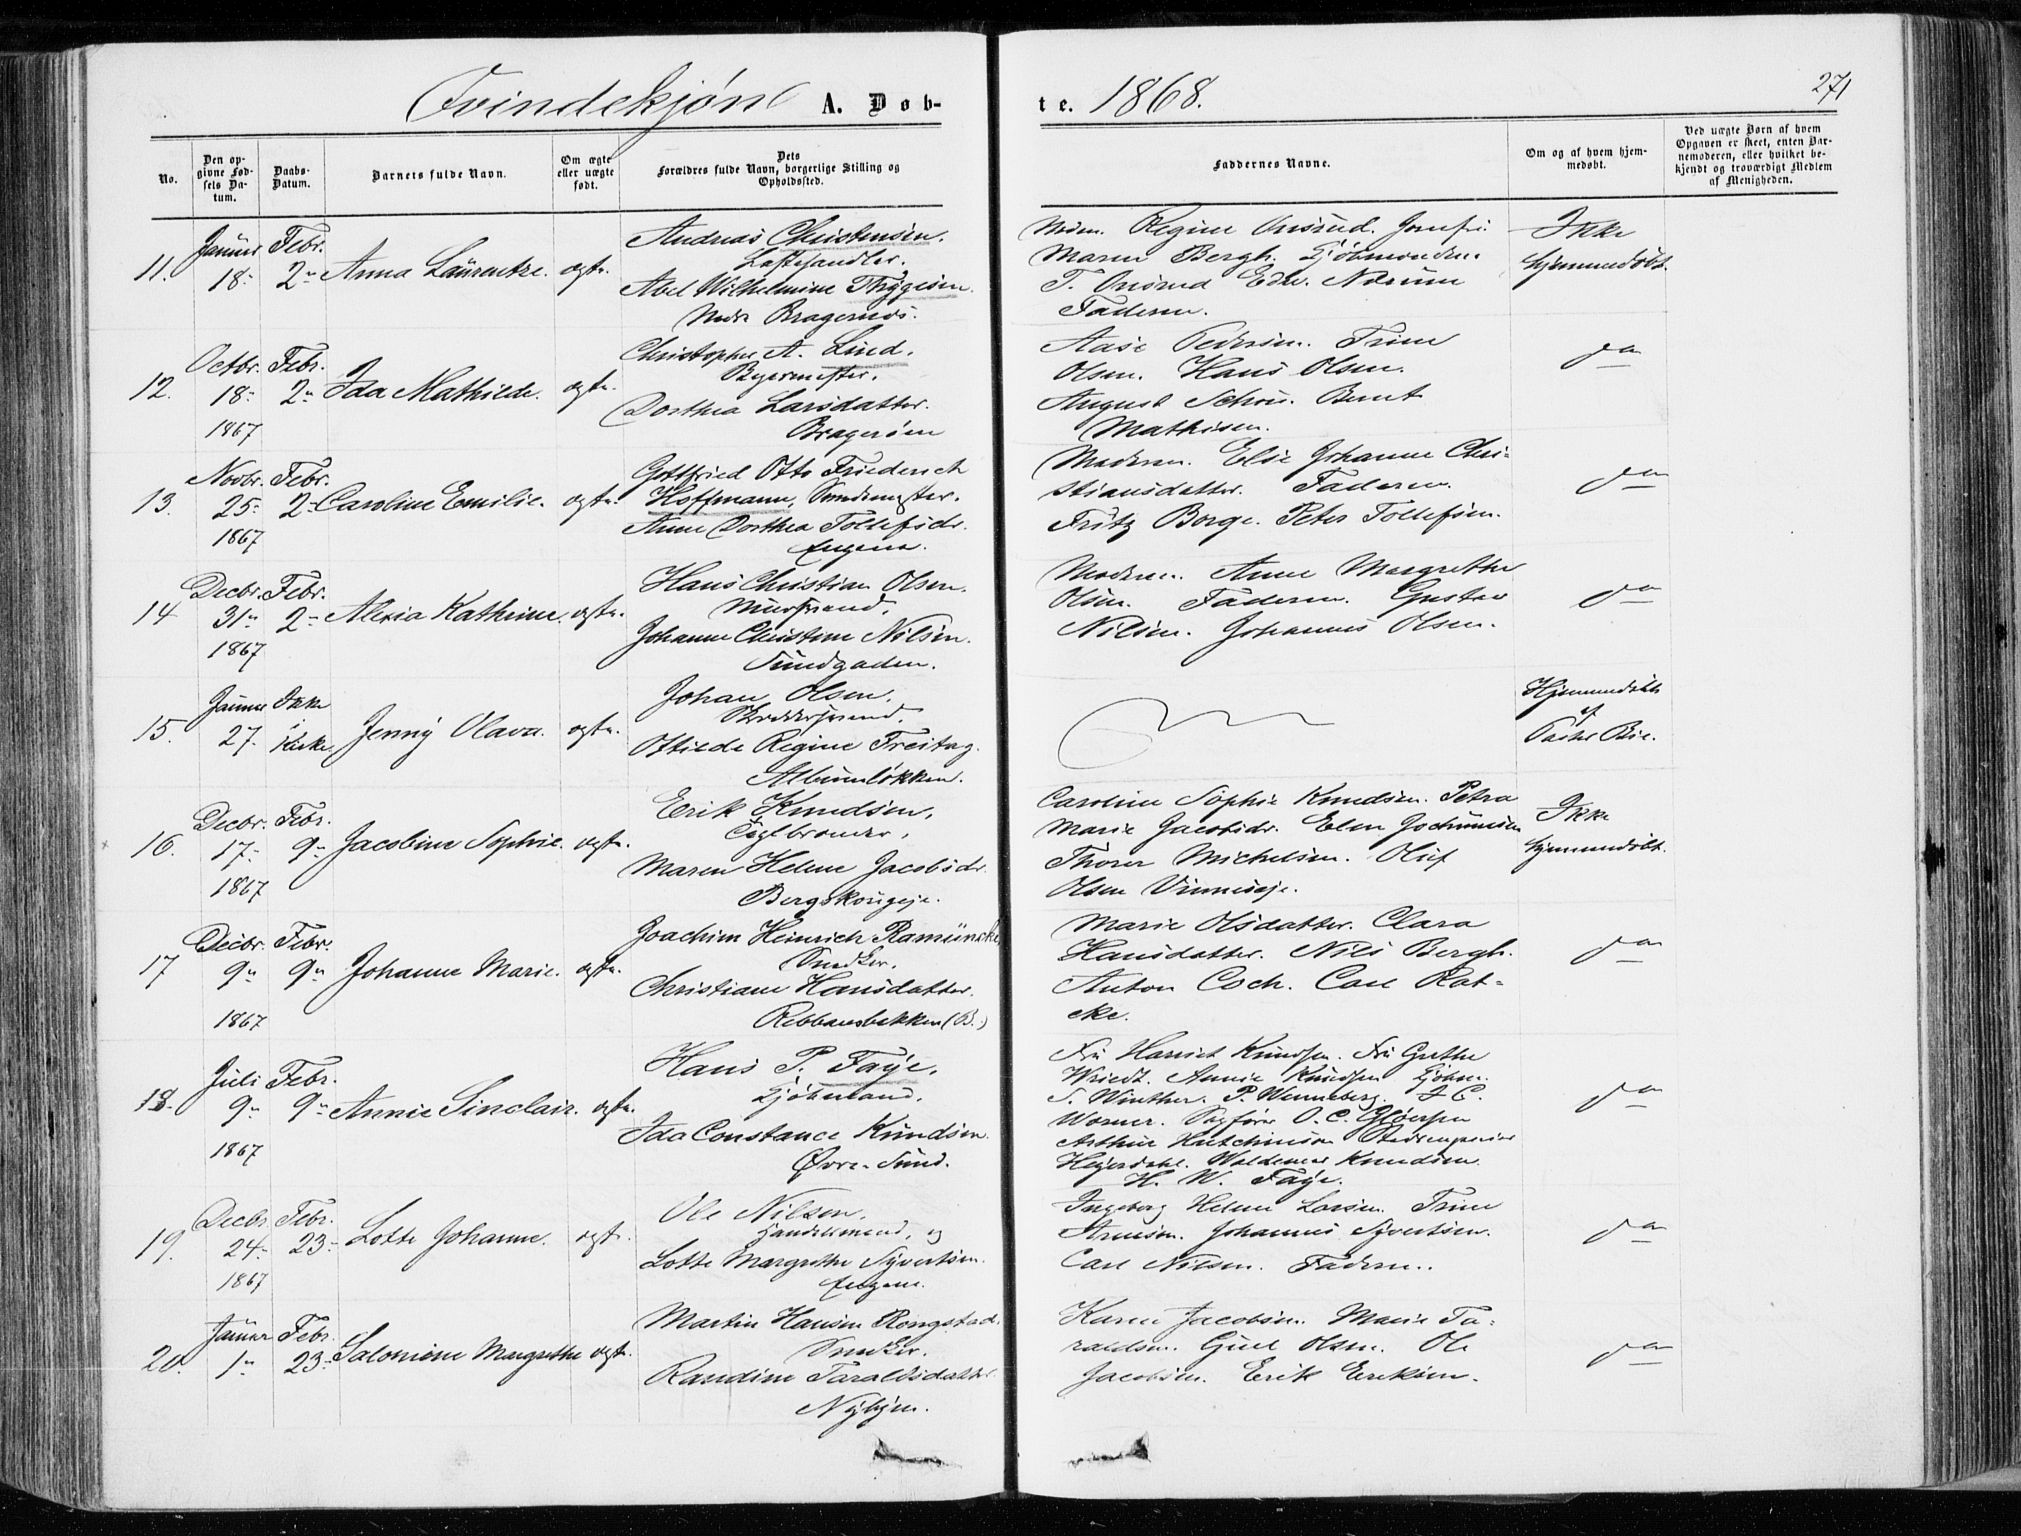 Qvindekjøn A. Døb-
te. 1868.
271
No.
Den op-
givne Fød-
sels Da-
tum.
Daabs-
Datum.
Barnets fulde Navn.
Om ægte
eller uægte
født.
Dets
Forældres fulde Navn, borgerlige Stilling og
Opholdssted.
Faddernes Navne.
Om og af hvem hjem-
medøbt.
Ved uægte Børn af hvem
Opgaven er skeet, enten Bar-
nemoderen, eller hvilket be-
kjendt og troværdigt Medlem
af Menigheden.
11.
Januar
18.
Febr.
2.
Anna Laurentze.
ægte.
Andreas Christensen.
Abel Wilhelmine Thygesen.
Nedre Bragernæs.
Regine Onsrud.
Maren Bergh.
T. Onsrud
Faderen.
Ikke
hjemmedøbt.
12.
Octbr.
18.
1867
Febr.
2.
Ida Mathilde.
ægte.
Christopher A. Lind.
Bygmester.
Dorthea Larsdatter.
Bragerøen
Aase Pedersen. Trine
Olsen. Hans Olsen.
August Schou. Bernt
Mathisen.
do
13.
Novbr.
25.
1867
Febr.
2.
Caroline Emilie.
ægte.
Gottfried Otto Friederich
Hoffmann,
Anne Dorthea Tollefsdr.
Engene.
Moderen. Elise Johanne Chri-
stiansdatter. Faderen.
Fritz Borge. Peter Tollefsen.
do
14
Decbr.
31.
1867
Febr.
2.
Alexia Kathrine.
ægte.
Hans Christian Olsen.
Muursvend.
Johanne Christine Nilsen.
Sundgaden.
Moderen. Anne Margrethe
Olsen. Faderen. Gustav
Nilsen. Johannes Olsen.
do
15.
Januar
27.
Ikke
i
Kirke.
Jenny Olava.
ægte.
Johan Olsen.
Skræddersvend.
Ottilde Regine Freitag.
Albumløkken.
Hjemmedøbt
af
16.
Decbr.
17.
1867
Febr.
9.
Jacobine Sophie.
ægte.
Erik Knudsen,
Teglbrænder,
Maren Helene Jacobsdr.
Bergskougeje.
Caroline Sophie Knudsen. Petra
Marie Jacobsdr. Elen Jochumsen
Thorer Michelsen. Oluf
Olsen Vinneseje.
Ikke
hjemmedøbt.
17
Decbr.
9.
1867
Febr.
9.
Johanne Marie.
ægte.
Joachim Heinrich Ramünske,
Snedker.
Christiane Hansdatter.
Rebbansbakken (B.)
Marie Olsdatter. Clara
Hansdatter. Nils Bergh.
Anton Coch. Carl Rat-
cke.
do
18.
Juli
9.
1867
Febr.
9.
Annie Sinclair.
ægte.
Hans P. Faye,
Kjøbmand.
Ida Constance Knudsen.
Øvre-Sund.
Fru Harriet Knudsen. Fru Grethe
Wriedt. Annie Knudsen Kjøbm.
S. Winther. P. Wenneberg. J C.
Worner. Sagfører O. C. Gløersen
Arthur Hutchinson
Heyerdahl. Waldemar Knudsen.
H. W. Faye.
do
19.
Decbr.
24.
1867
Febr.
23.
Lotte Johanne.
ægte.
Ole Nilsen,
Handelsmand, og
Lotte Margrethe Syvertsen.
Engene.
Ingeborg Helene Larsen. Trine
Arnesen. Johannes Syvertsen.
Carl Nilsen. Faderen.
do
20.
Januar
1.
Febr.
23.
Salomine Margrethe
ægte.
Martin Hansen Rongstad.
Snedker.
Randine Taraldsdatter.
Nybyen.
Karen Jacobsen. Marie Ta-
raldsen. Gjul Olsen. Ole
Jacobsen. Erik Eriksen.
do